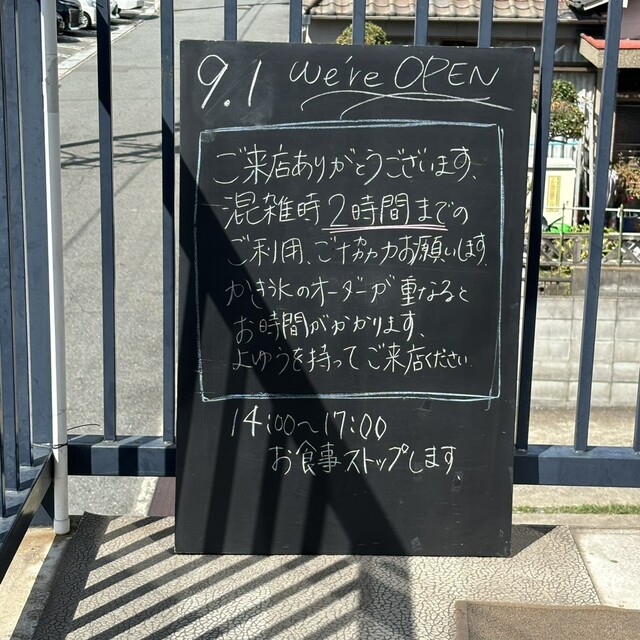 9.1 We're OPEN
ご来店ありがとうございます、
混雑時2時間までの
ご利用、ご協力お願いします
かき氷のオーダーが重なると
お時間がかかります、
よゆうを持ってご来店ください。
14:00〜17:00
お食事ストップします、